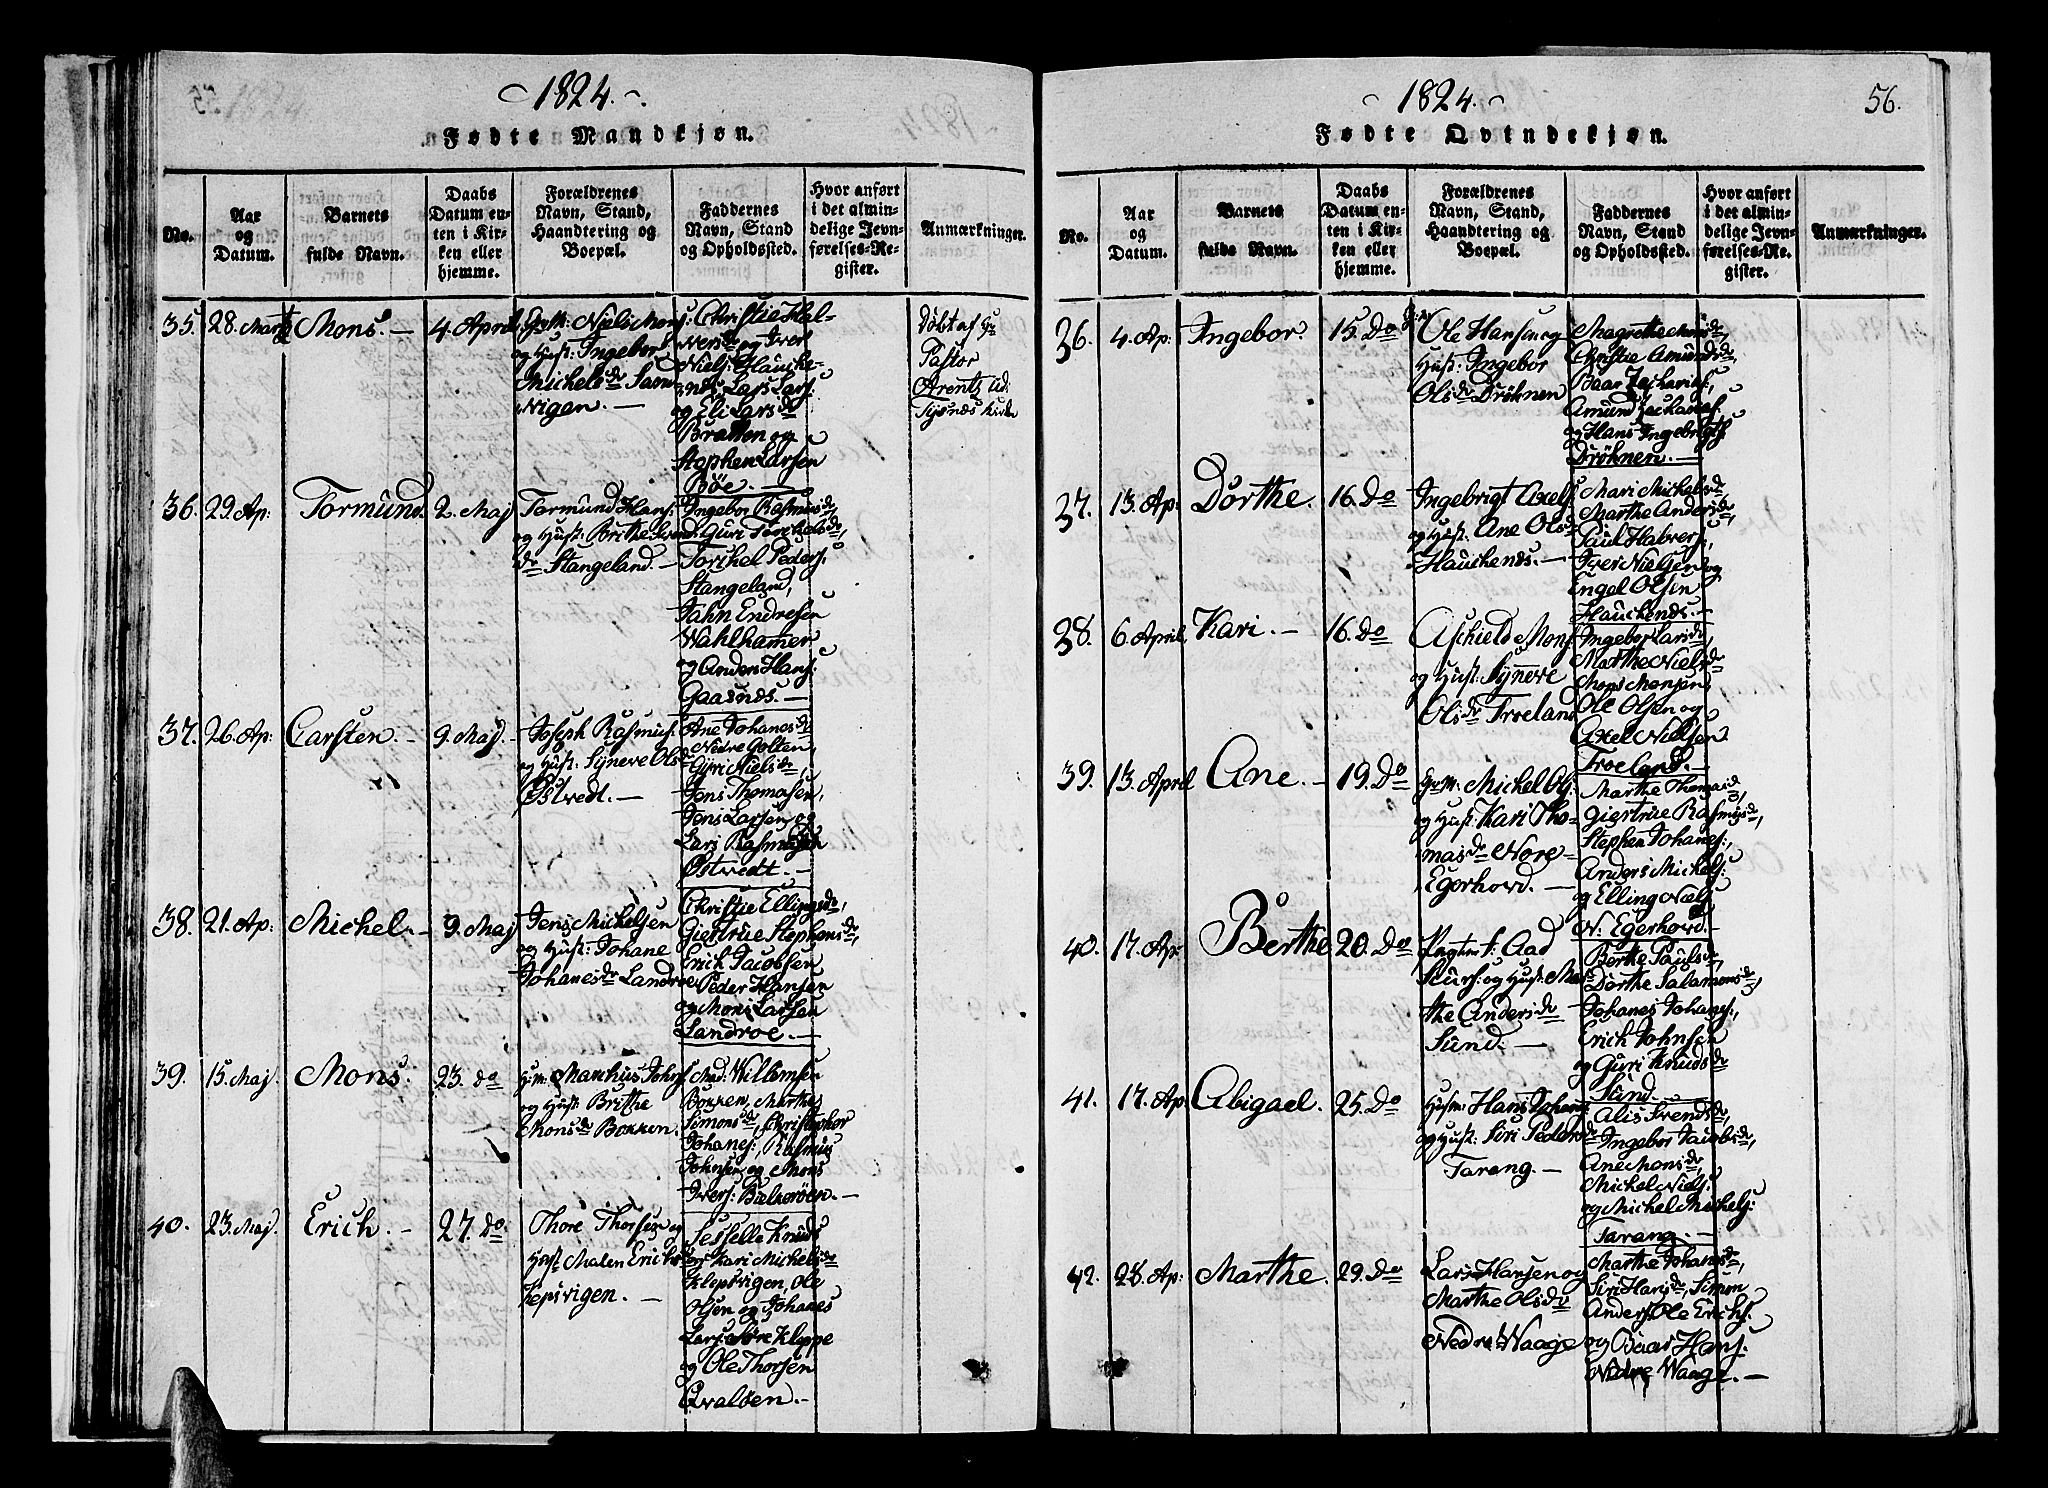 1824.
Fødte Mandkjøn.
No.
Aar
og
Datum.
Barnets
fulde Navn.
Daabs
Datum en-
ten i Kir-
ken eller
hjemme.
Forældrenes
Navn, Stand,
Haandtering og
Boepæl.
Faddernes
Navn, Stand
og Opholdssted.
Hvor anført
i det almin-
delige Jevn-
førelses-Re-
gister.
Anmærkninger.
35.
28. Marti
Mons. —
4 April
Niels Mons:
og Hust: Ingebor
Michelsdr Sam
wigen. —
Christie Hal-
versdr og Iver
Niels: Hauche-
næs, Lars Lars:
og Eli Larsdr
Bratten og
Stephen Larsen
Bøe. —
Døbt af Hr
Pastor
Arentz ad
Tysnæs Kirke
36.
29. Ap:
Tormund.
2. Maj
Tormund Hans:
og Hust: Brithe Svend
dr Stangeland. —
Ingebor Rasmusdr
Guri Torchelsdr,
Torchel Peders:
Stangeland,
Jahn Endresen
Wahlhamer
og Anders Hans:
Gaasnæs. —
37.
26. Ap:
Carsten. —
9. Maj. —
Joseph Rasmus:
og Hust: Syneve Olsdr
Østvedt. —
Ane Johanesdr
Nedre Golten,
Gyri Nielsdr,
Jens Thomasen,
Jens Larsen og
Lars Rasmusen
Østvedt. —
38.
21. Ap:
Michel. —
9. Maj
Jens Michelsen
og Hust: Johane
Johanesdr Landroe
Christie Ellingsdr,
Giertrue Stephensdr,
Erich Jacobsen
Peder Hansen
og Mons Larsen
Landroe. —
39.
15. Maj.
Mons:
23. do
Hm: Marchus Johns
og Hust: Brithe
Monsdr Bokken. —
Mad: Willemsen
Bokken, Marthe
Simonsdr, Christopher
Johanes:, Rasmus
Johnsen og Mons
Ivers: Bielkerøen. —
40.
23. Maj.
Erich. —
27. do.
Thore Thorsen og
Hust Malen Erichsdr
Klepsvigen. —
Sesselle Knuds
og Kari Michelsdr
Klepsvigen, Ole
Olsen og Johanes
Lars: Søre Kleppe
og Ole Thorsen
Qvaløen. —
1824.
56.
Fødte Qvindekjøn.
No.
Aar
og
Datum.
Barnets
fulde Navn.
Daabs
Datum en-
ten i Kir-
ken eller
hjemme.
Forældrenes
Navn, Stand,
Haandtering og
Boepæl.
Faddernes
Navn, Stand
og Opholdssted.
Hvor anført
i det almin-
delige Jevn-
førelses-Re-
gister.
Anmærkninger.
36.
4. Ap:
Ingebor.
15. Do
Ole Hansen og
Hust: Ingebor
Olsdr Drøhnen
Magrethe Monsdr,
Christie Amundsdr,
Baar Zacharias:,
Amund Zacharias:
og Hans Ingebrigts:
Drøhnen. —
37.
13. Ap:
Dorthe.
16. Do
Ingebrigt Axels:
og Hust: Ane Olsdr
Hauchenæs. —
Mari Michelsdr
Marthe Andersdr
Paul Halvers:,
Iver Nielsen og
Engel Olsen
Hauchenæs. —
38.
6. April
Kari. —
16. Do
Aschield Mons:
og Hust: Synneve
Olsdr Troeland
Ingebor Larsdr,
Marthe Nielsdr
Mons Monsen,
Ole Olsen og
Axel Nielsen
Troeland. —
39.
13. April
Ane. —
19. Do
Michel Ols:
og Hust: Kari Tho-
masdr Nore-
Egerhovd. —
Marthe Thomasdr,
Giertrue Rasmusdr,
Stephen Johanes:,
Anders Michels:
og Elling Niels:
N: Egerhovd. —
40.
17. Ap:
Berthe
20. Do
Aad
Siurs: og Hust: Mar-
the Andersdr
Sund. —
Berthe Paulsdr,
Dorthe Salamonsdr,
Johanes Johanes:,
Erich Johnsen
og Guri Knudsdr
Sund. —
41.
17. Ap:
Abigael.
25. Do
Husm: Hans Johans:
og Hust: Siri Pedersdr
Tarang. —
Alis Svendsdr,
Ingebor Jacobsdr,
Ane Monsdr,
Michel Niels:
og Michel Michels:
Tarang. —
42.
28. Ap:
Marthe.
29. Do
Lars Hansen og
Marthe Olsdr
Nedre Waage
Marthe Johanesdr,
Siri Hansdr, Simon
Anders: Ole Erichs:
og Baar Hans:
Nedre Waage. —